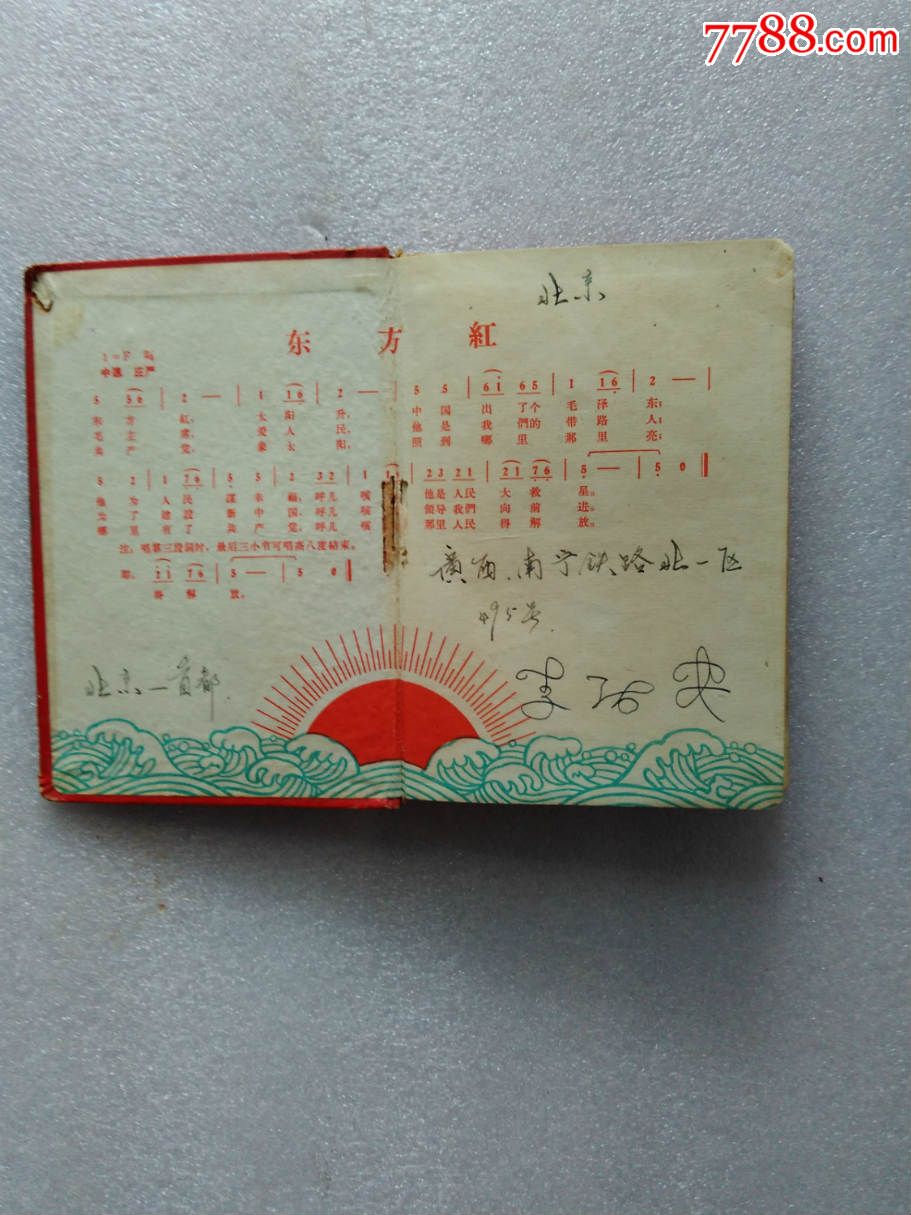 7788.com
北京
东方紅
1=F 2/4
中速 庄严
5 56 | 2 — | 1 16 | 2 — | 5 5 | 61 65 | 1 16 | 2 — |
东方紅，太阳升，中国出了个毛泽东；
毛主席，爱人民，他是我們的带路人；
共产党，象太阳，照到哪里那里亮；
5 2 | 1 76 | 5 5 | 2 32 | 1 1 | 23 21 | 21 76 | 5 — | 5 0 ‖
他为人民謀幸福，呼儿嗨 他是人民大救星。
为了建設新中国，呼儿嗨 領导我們向前进。
哪里有了共产党，呼儿嗨 那里人民得解放。
注：唱第三段詞时，最后三小节可唱高八度結束。
21 76 | 5 — | 5 0 ‖
得解放。
廣西、南宁铁路北一区
495号
北京—首都